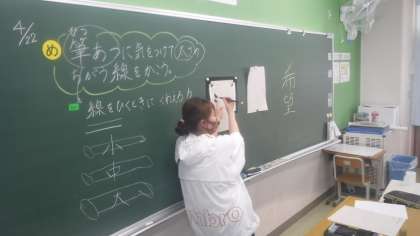 4/22
め 筆あつに気をつけて太さの
ちがう線をかこう。
線をひくときに 入れる力
小
中
大
希望
umbro